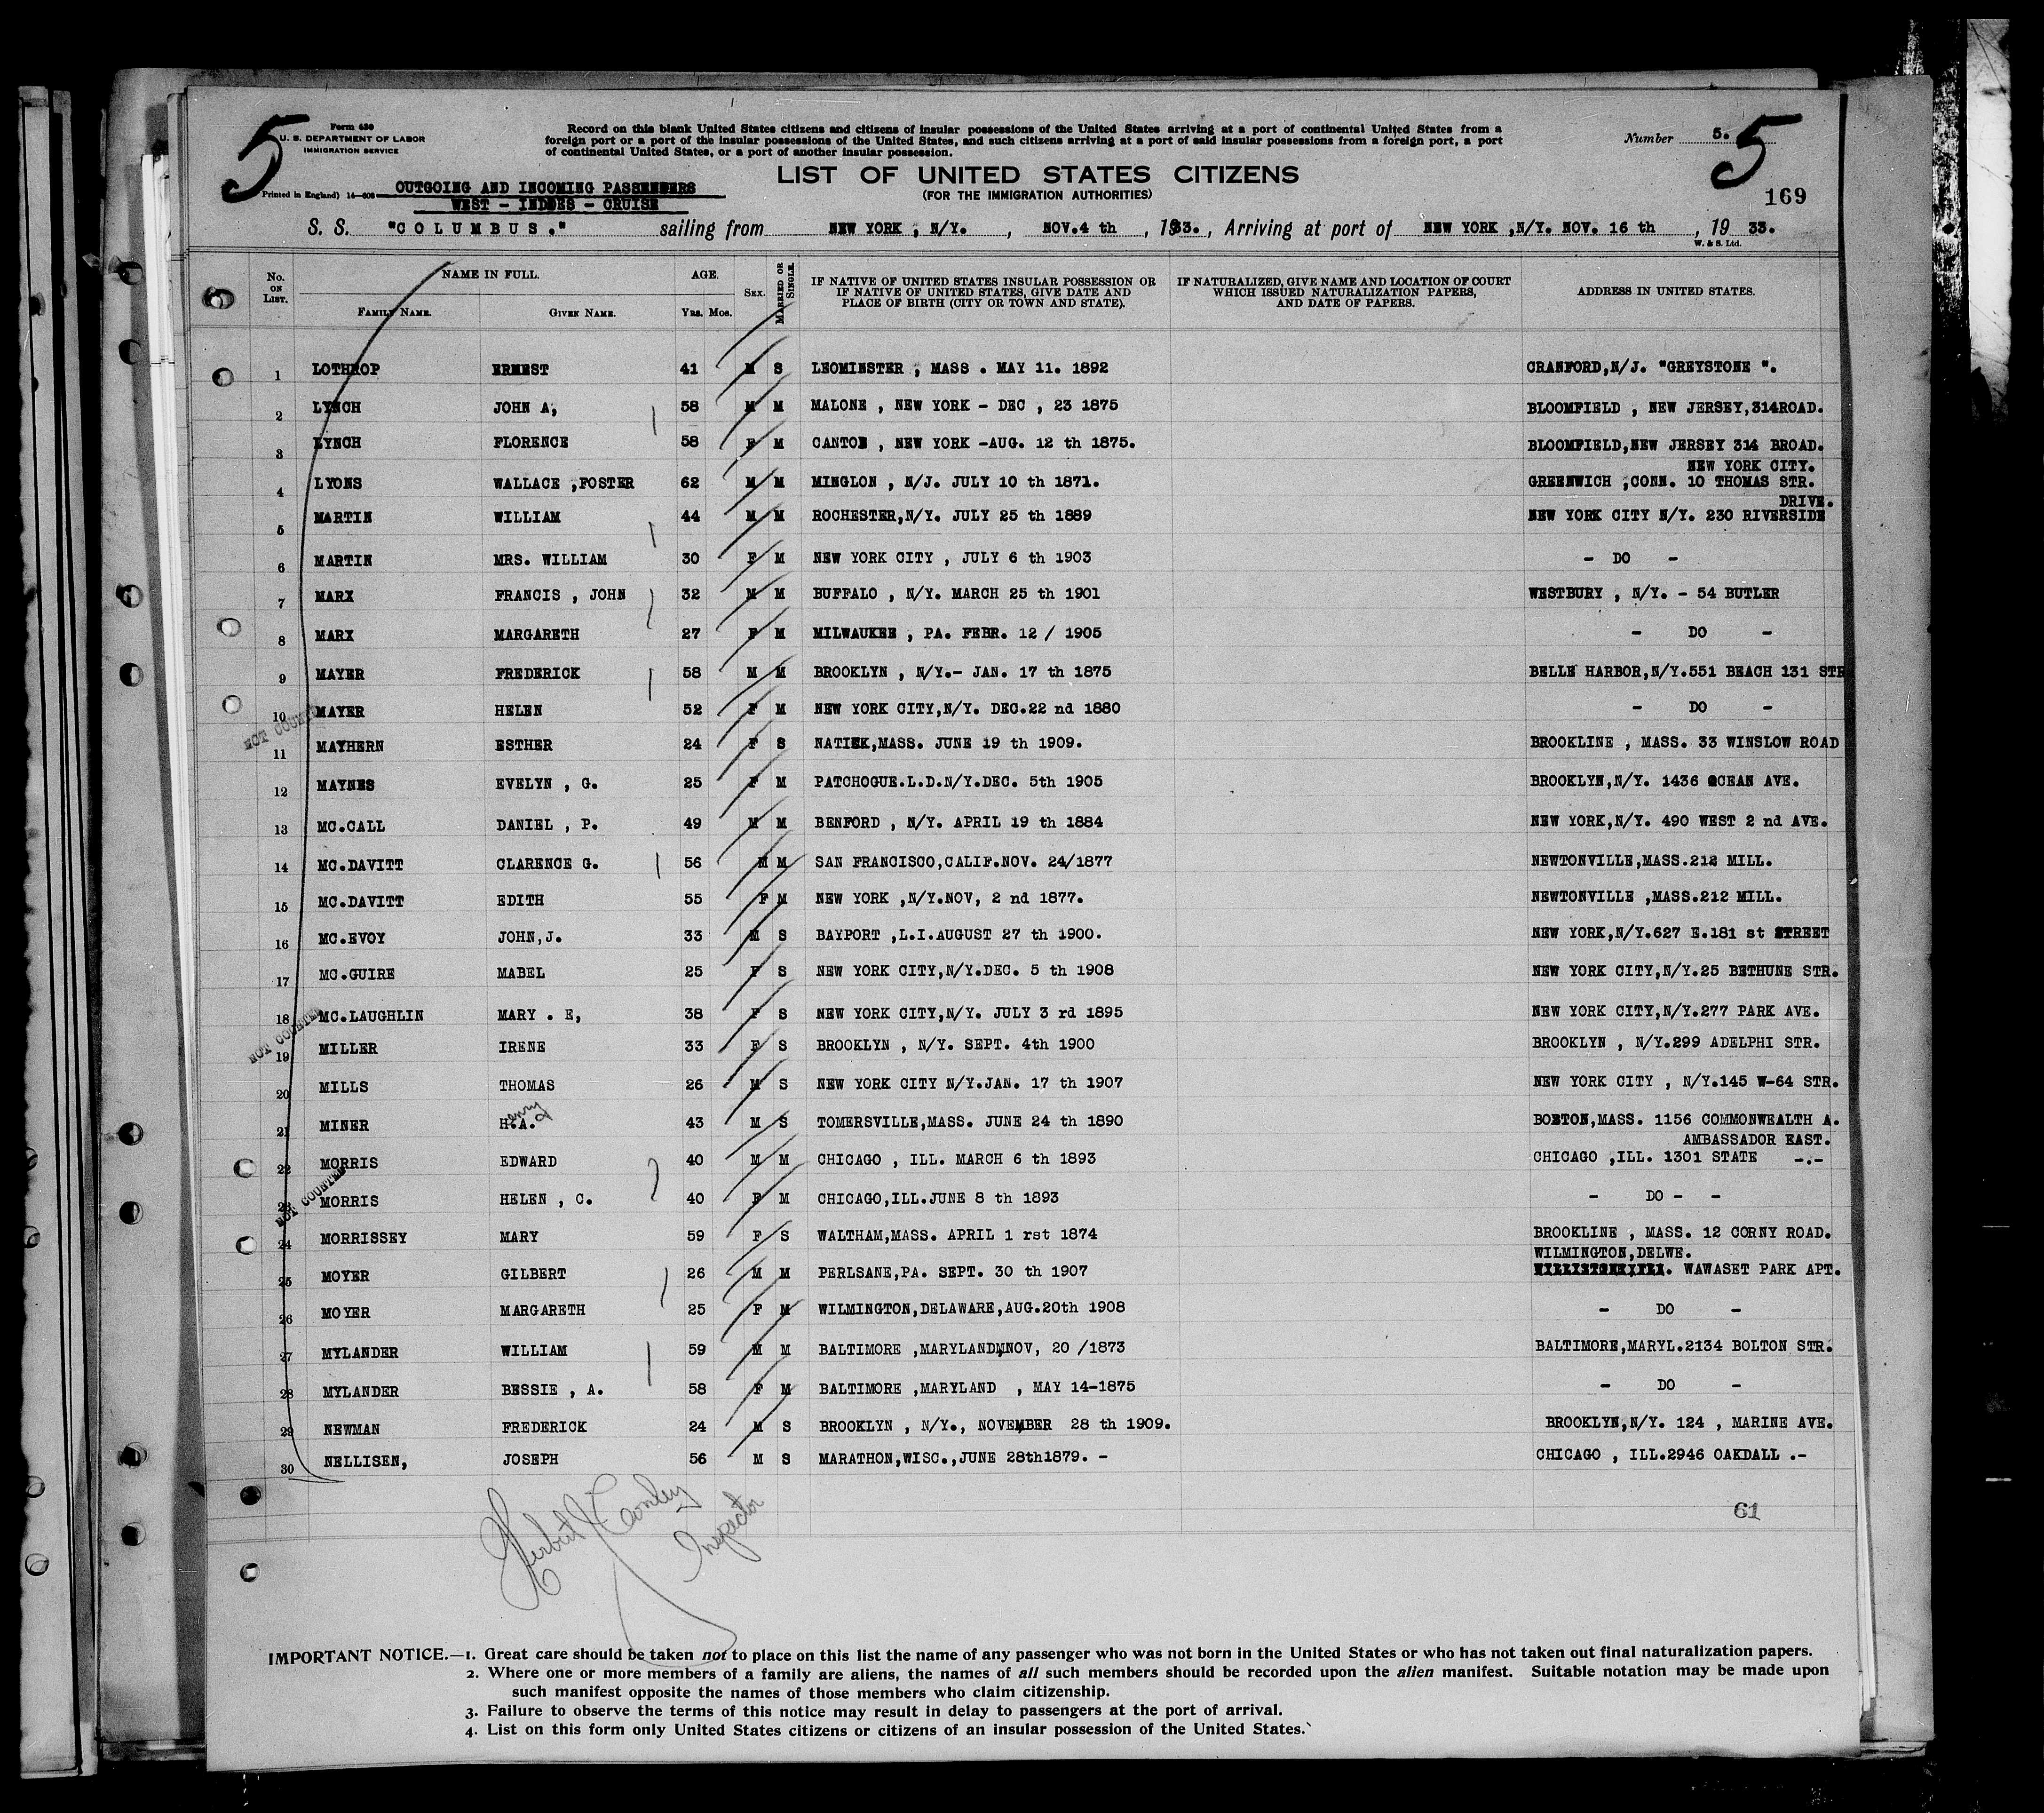 5
Form 630
U. S. DEPARTMENT OF LABOR
IMMIGRATION SERVICE
Record on this blank United States citizens and citizens of insular possessions of the United States arriving at a port of continental United States from a
foreign port or a port of the insular possessions of the United States, and such citizens arriving at a port of said insular possessions from a foreign port, a port
of continental United States, or a port of another insular possession.
Number 5.
5
169
Printed in England) 14—608
OUTGOING AND INCOMING PASSENGERS
WEST - INDIES - CRUISE
LIST OF UNITED STATES CITIZENS
(FOR THE IMMIGRATION AUTHORITIES)
S. S. "COLUMBUS." sailing from NEW YORK, N/Y. , NOV.4 th , 1933. , Arriving at port of NEW YORK ,N/Y. NOV. 16 th , 19 33.
W. & S. Ltd.
No. ON LIST. NAME IN FULL. AGE. SEX. MARRIED OR SINGLE. IF NATIVE OF UNITED STATES INSULAR POSSESSION OR IF NATIVE OF UNITED STATES, GIVE DATE AND PLACE OF BIRTH (CITY OR TOWN AND STATE). IF NATURALIZED, GIVE NAME AND LOCATION OF COURT WHICH ISSUED NATURALIZATION PAPERS, AND DATE OF PAPERS. ADDRESS IN UNITED STATES.
FAMILY NAME. GIVEN NAME. Yrs. Mos.
1 LOTHROP ERNEST 41 M S LEOMINSTER , MASS . MAY 11. 1892 CRANFORD,N/J. "GREYSTONE ".
2 LYNCH JOHN A, 58 M M MALONE , NEW YORK - DEC , 23 1875 BLOOMFIELD , NEW JERSEY,314ROAD.
3 LYNCH FLORENCE 58 F M CANTON , NEW YORK -AUG. 12 th 1875. BLOOMFIELD,NEW JERSEY 314 BROAD.
NEW YORK CITY.
4 LYONS WALLACE ,FOSTER 62 M M MINGLON , N/J. JULY 10 th 1871. GREENWICH ,CONN. 10 THOMAS STR.
DRIVE.
5 MARTIN WILLIAM 44 M M ROCHESTER,N/Y. JULY 25 th 1889 NEW YORK CITY N/Y. 230 RIVERSIDE
6 MARTIN MRS. WILLIAM 30 F M NEW YORK CITY , JULY 6 th 1903 - DO -
7 MARX FRANCIS , JOHN 32 M M BUFFALO , N/Y. MARCH 25 th 1901 WESTBURY , N/Y. - 54 BUTLER
8 MARX MARGARETH 27 F M MILWAUKEE , PA. FEBR. 12 / 1905 - DO -
9 MAYER FREDERICK 58 M M BROOKLYN , N/Y.- JAN. 17 th 1875 BELLE HARBOR,N/Y.551 BEACH 131 STR
10 MAYER HELEN 52 F M NEW YORK CITY,N/Y. DEC.22 nd 1880 - DO -
NOT COUNTED
11 MAYHERN ESTHER 24 F S NATIEK,MASS. JUNE 19 th 1909. BROOKLINE , MASS. 33 WINSLOW ROAD
12 MAYNES EVELYN , G. 25 F M PATCHOGUE.L.D.N/Y.DEC. 5th 1905 BROOKLYN,N/Y. 1436 OCEAN AVE.
13 MC.CALL DANIEL , P. 49 M M BENFORD , N/Y. APRIL 19 th 1884 NEW YORK,N/Y. 490 WEST 2 nd AVE.
14 MC.DAVITT CLARENCE G. 56 M M SAN FRANCISCO,CALIF.NOV. 24/1877 NEWTONVILLE,MASS.212 MILL.
15 MC.DAVITT EDITH 55 F M NEW YORK ,N/Y.NOV, 2 nd 1877. NEWTONVILLE ,MASS.212 MILL.
16 MC.EVOY JOHN,J. 33 M S BAYPORT ,L.I.AUGUST 27 th 1900. NEW YORK,N/Y.627 E.181 st STREET
17 MC.GUIRE MABEL 25 F S NEW YORK CITY,N/Y.DEC. 5 th 1908 NEW YORK CITY,N/Y.25 BETHUNE STR.
18 MC.LAUGHLIN MARY . E, 38 F S NEW YORK CITY,N/Y. JULY 3 rd 1895 NEW YORK CITY,N/Y.277 PARK AVE.
NOT COUNTED
19 MILLER IRENE 33 F S BROOKLYN , N/Y. SEPT. 4th 1900 BROOKLYN , N/Y.299 ADELPHI STR.
20 MILLS THOMAS 26 M S NEW YORK CITY N/Y.JAN. 17 th 1907 NEW YORK CITY , N/Y.145 W-64 STR.
enry
21 MINER H.A. 43 M S TOMERSVILLE,MASS. JUNE 24 th 1890 BOSTON,MASS. 1156 COMMONWEALTH A.
AMBASSADOR EAST.
22 MORRIS EDWARD 40 M M CHICAGO , ILL. MARCH 6 th 1893 CHICAGO ,ILL. 1301 STATE -.-
NOT COUNTED
23 MORRIS HELEN , C. 40 F M CHICAGO,ILL.JUNE 8 th 1893 - DO - -
24 MORRISSEY MARY 59 F S WALTHAM,MASS. APRIL 1 rst 1874 BROOKLINE , MASS. 12 CORNY ROAD.
WILMINGTON,DELWE.
25 MOYER GILBERT 26 M M PERLSANE,PA. SEPT. 30 th 1907 WAWASET PARK APT.
26 MOYER MARGARETH 25 F M WILMINGTON,DELAWARE,AUG.20th 1908 - DO -
27 MYLANDER WILLIAM 59 M M BALTIMORE ,MARYLAND,NOV, 20 /1873 BALTIMORE,MARYL.2134 BOLTON STR.
28 MYLANDER BESSIE , A. 58 F M BALTIMORE ,MARYLAND , MAY 14-1875 - DO -
29 NEWMAN FREDERICK 24 M S BROOKLYN , N/Y., NOVEMBER 28 th 1909. BROOKLYN,N/Y. 124 , MARINE AVE.
30 NELLISEN, JOSEPH 56 M S MARATHON,WISC.,JUNE 28th1879. - CHICAGO , ILL.2946 OAKDALL .-
61
Herbert Conley
Inspector
IMPORTANT NOTICE.—1. Great care should be taken not to place on this list the name of any passenger who was not born in the United States or who has not taken out final naturalization papers.
2. Where one or more members of a family are aliens, the names of all such members should be recorded upon the alien manifest. Suitable notation may be made upon
such manifest opposite the names of those members who claim citizenship.
3. Failure to observe the terms of this notice may result in delay to passengers at the port of arrival.
4. List on this form only United States citizens or citizens of an insular possession of the United States.